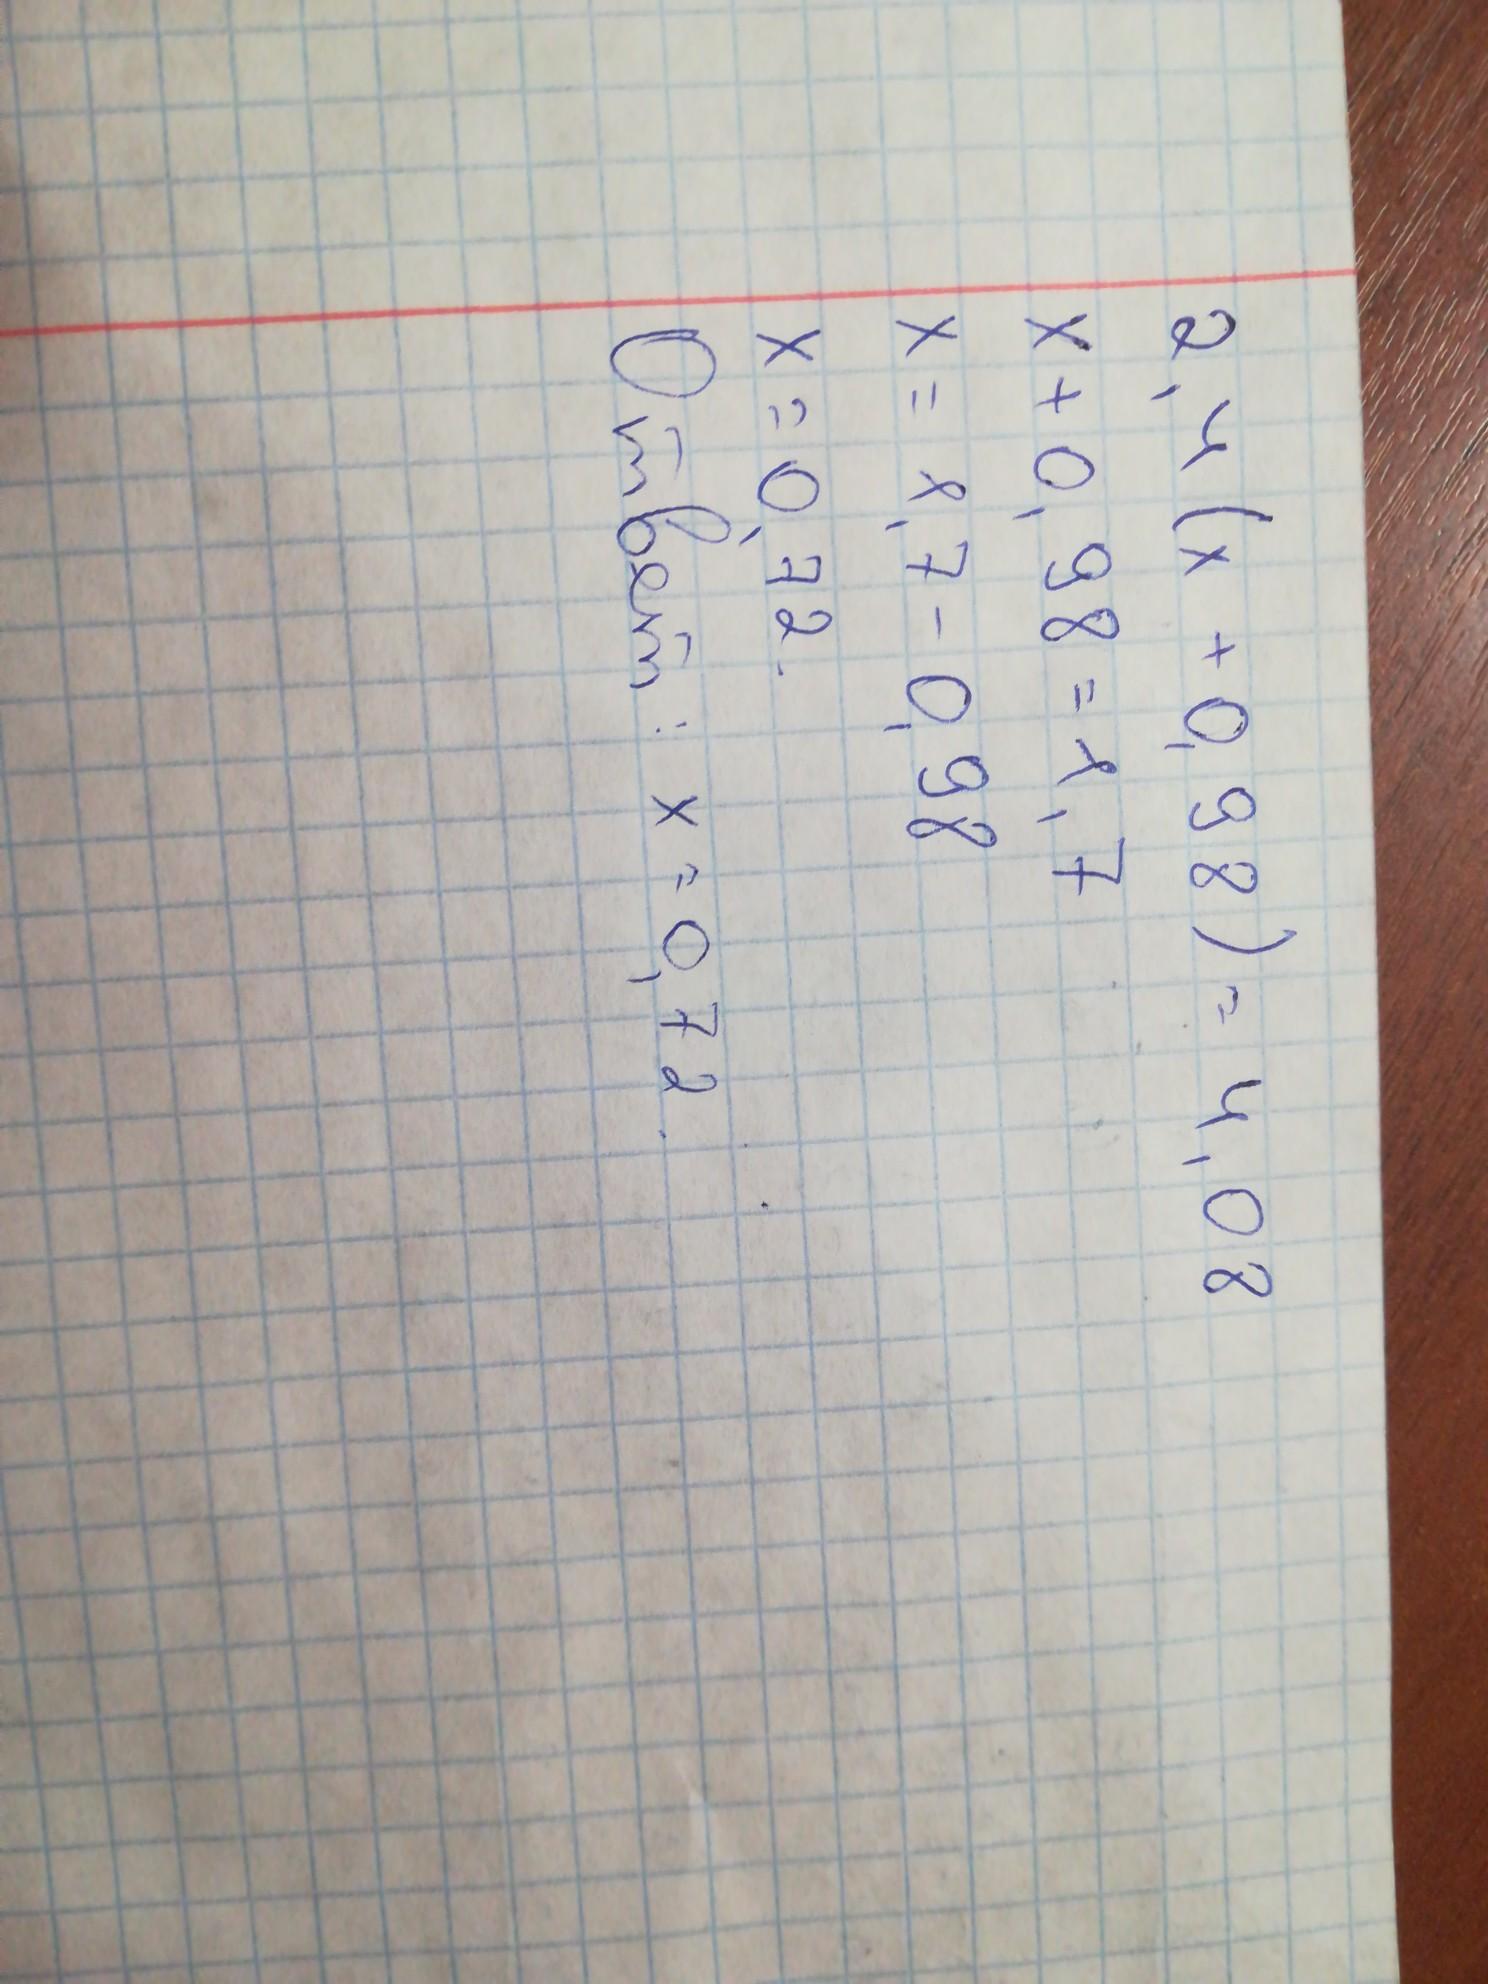 2,4(x + 0,98) = 4,08
x + 0,98 = 1,7
x = 1,7 - 0,98
x = 0,72.
Ответ: x = 0,72.